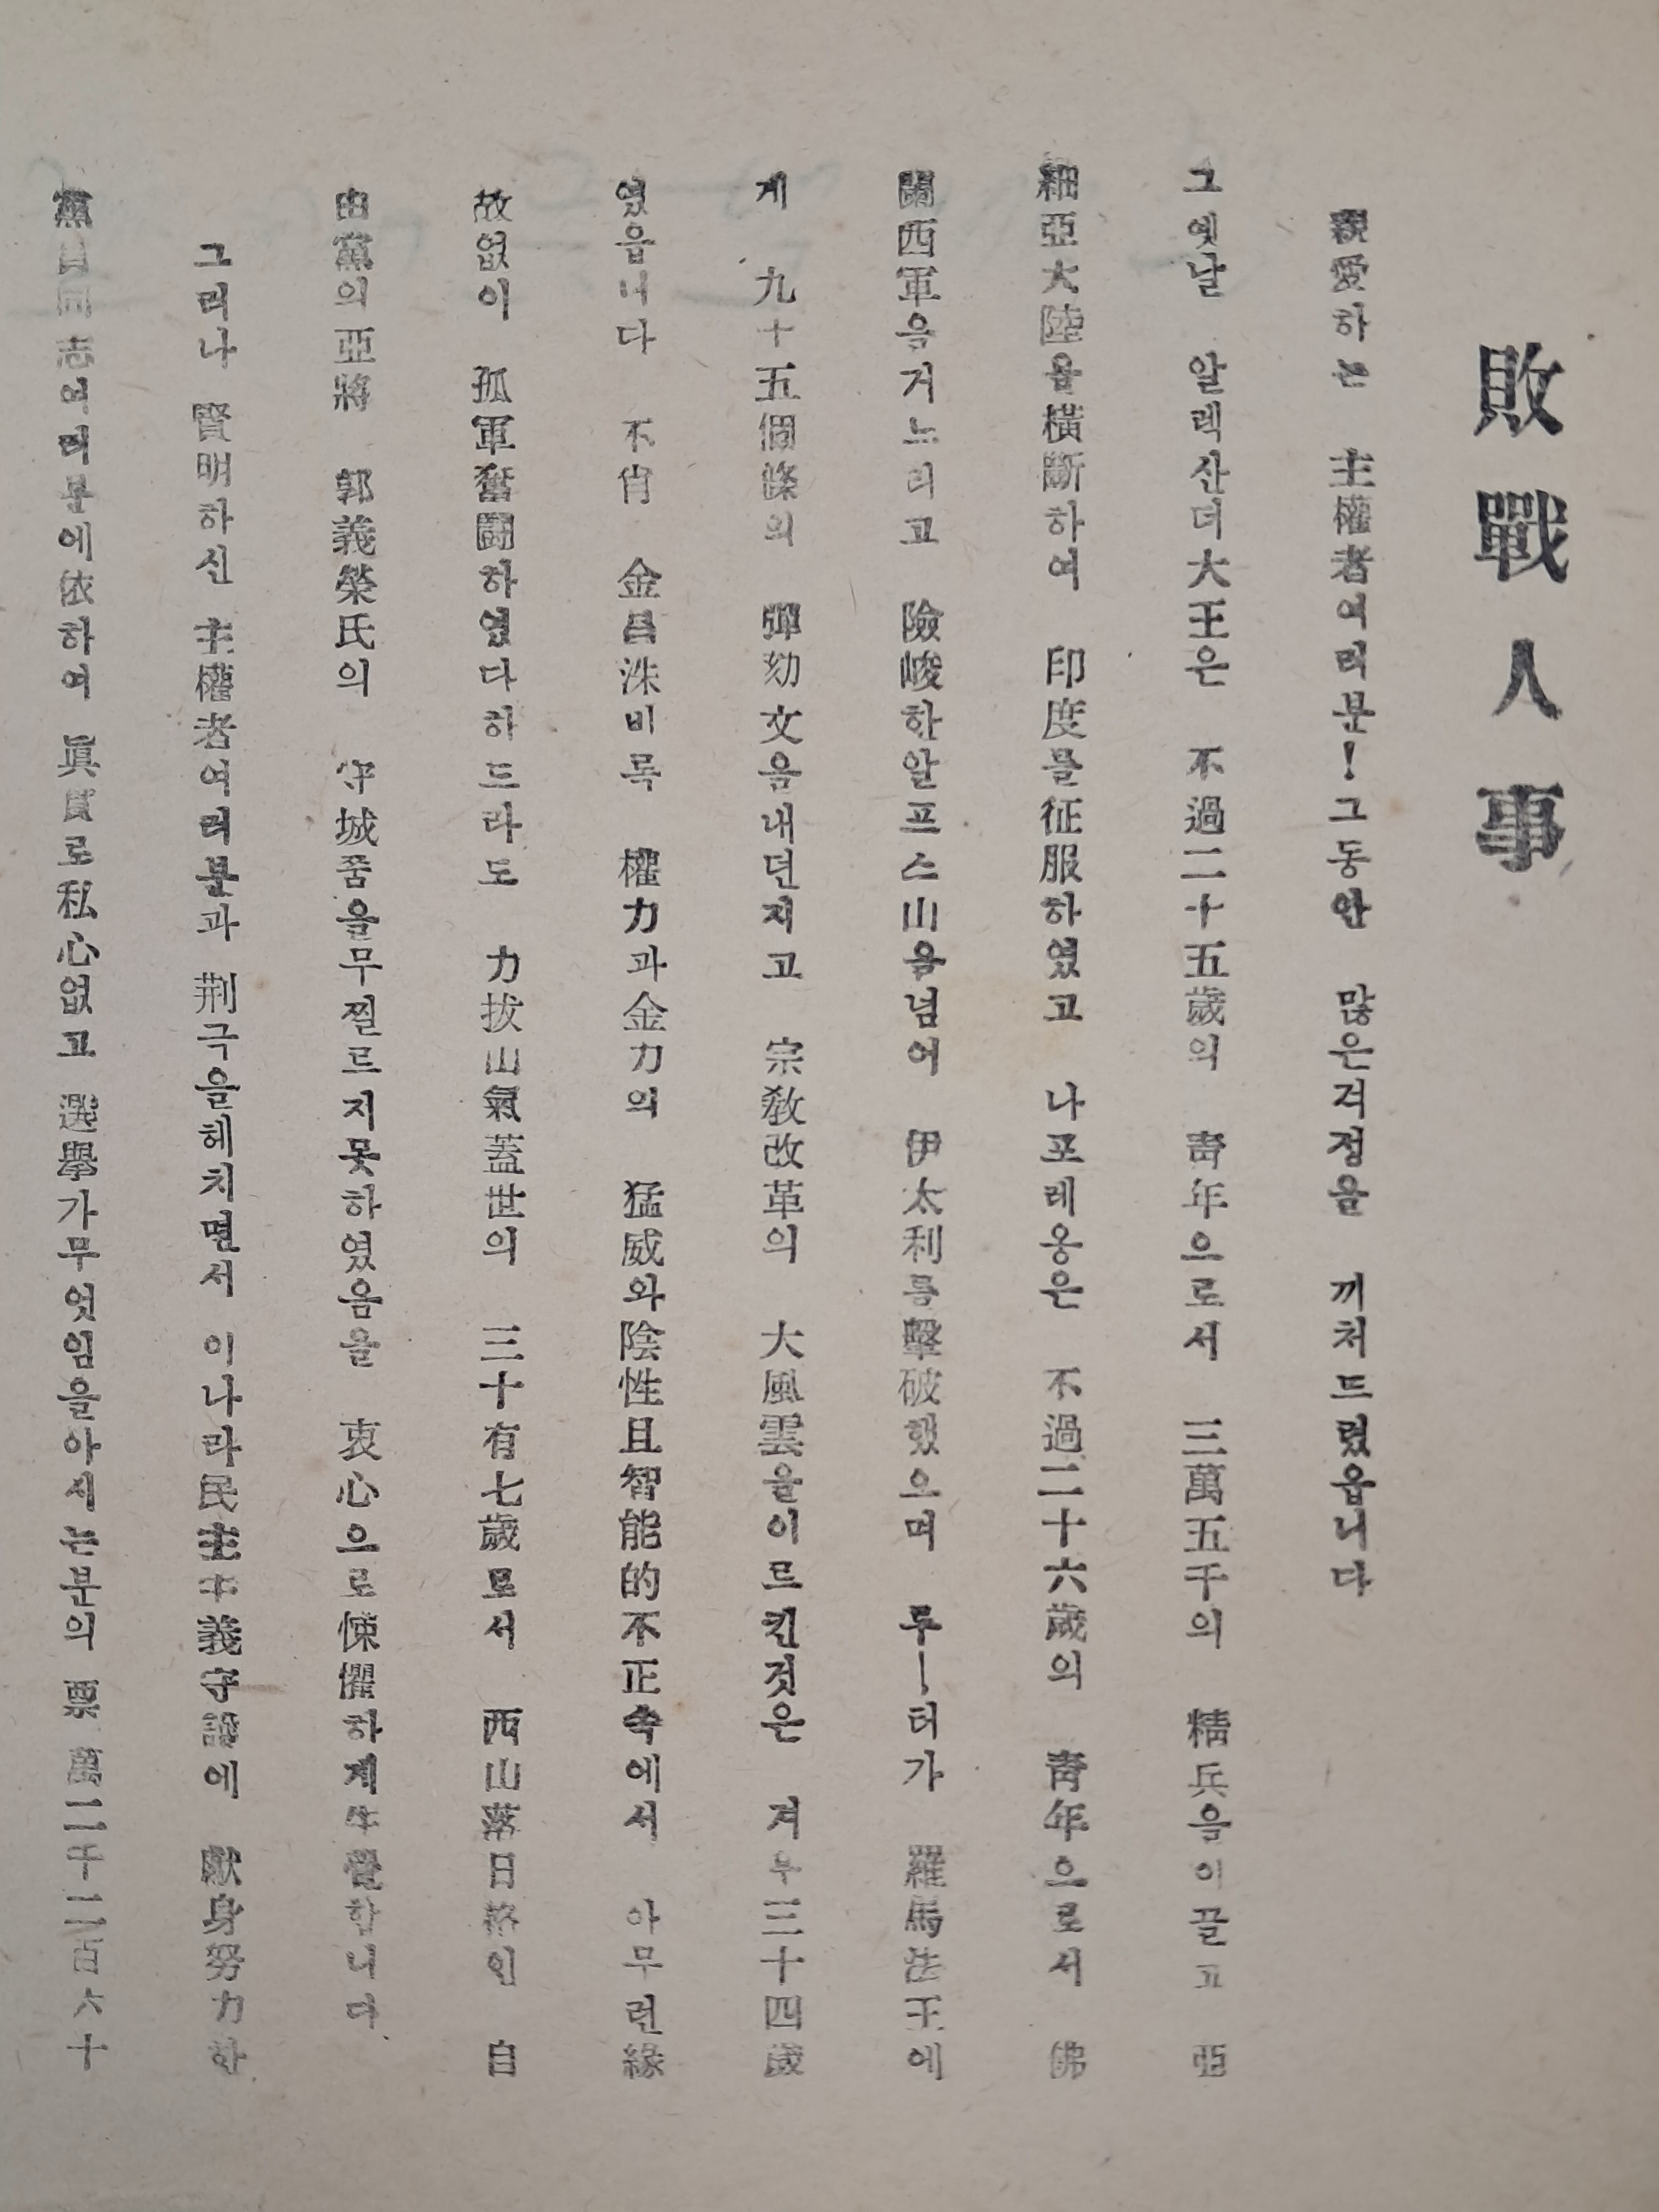 敗戰人事
親愛하는 主權者여러분!그동안 많은걱정을 끼처드렸읍니다
그옛날 알렉산더大王은 不過二十五歲의 靑年으로서 三萬五千의 精兵을이끌고 亞
細亞大陸을橫斷하여 印度를征服하였고 나포레옹은 不過二十六歲의 靑年으로서 佛
蘭西軍을거느리고 險峻한알프스山을넘어 伊太利를擊破했으며 루ㅣ터가 羅馬法王에
게 九十五個條의 彈劾文을내던지고 宗敎改革의 大風雲을이르킨것은 겨우三十四歲
였읍니다 不肖 金昌洙비록 權力과金力의 猛威와陰性且智能的不正속에서 아무런緣
故없이 孤軍奮鬪하였다하드라도 力拔山氣蓋世의 三十有七歲로서 西山落日格인 自
由黨의亞將 郭義榮氏의 守城품을무찔르지못하였음을 衷心으로悚懼하게生覺합니다
그러나 賢明하신 主權者여러분과 荆극을헤치면서 이나라民主主義守護에 獻身努力한
黨員同志여러분에依하여 眞實로私心없고 選擧가무엇임을아시는분의 票 萬二千二百六十